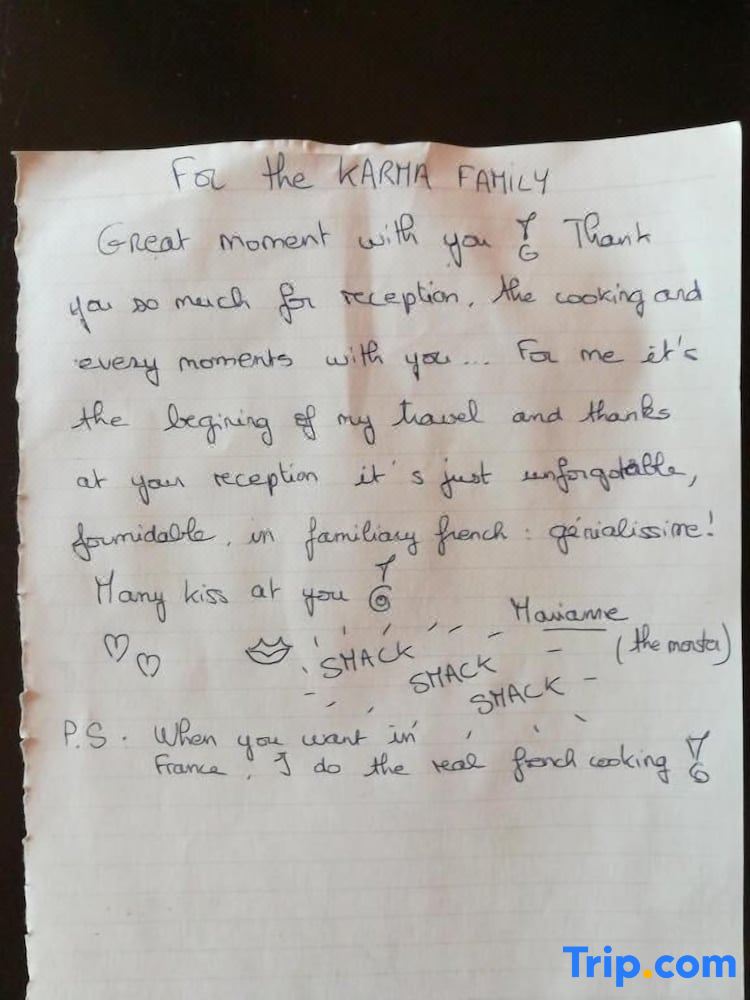 For the KARMA FAMILY
Great moment with you ! Thank
you so much for reception, the cooking and
every moments with you... For me it's
the begining of my travel and thanks
at your reception it's just unforgotable,
formidable, in familiary french : génialissime!
Many kiss at you !
Marianne
(the monster)
SMACK
SMACK
SMACK
P.S. When you want in
France, I do the real french cooking !
Trip.com